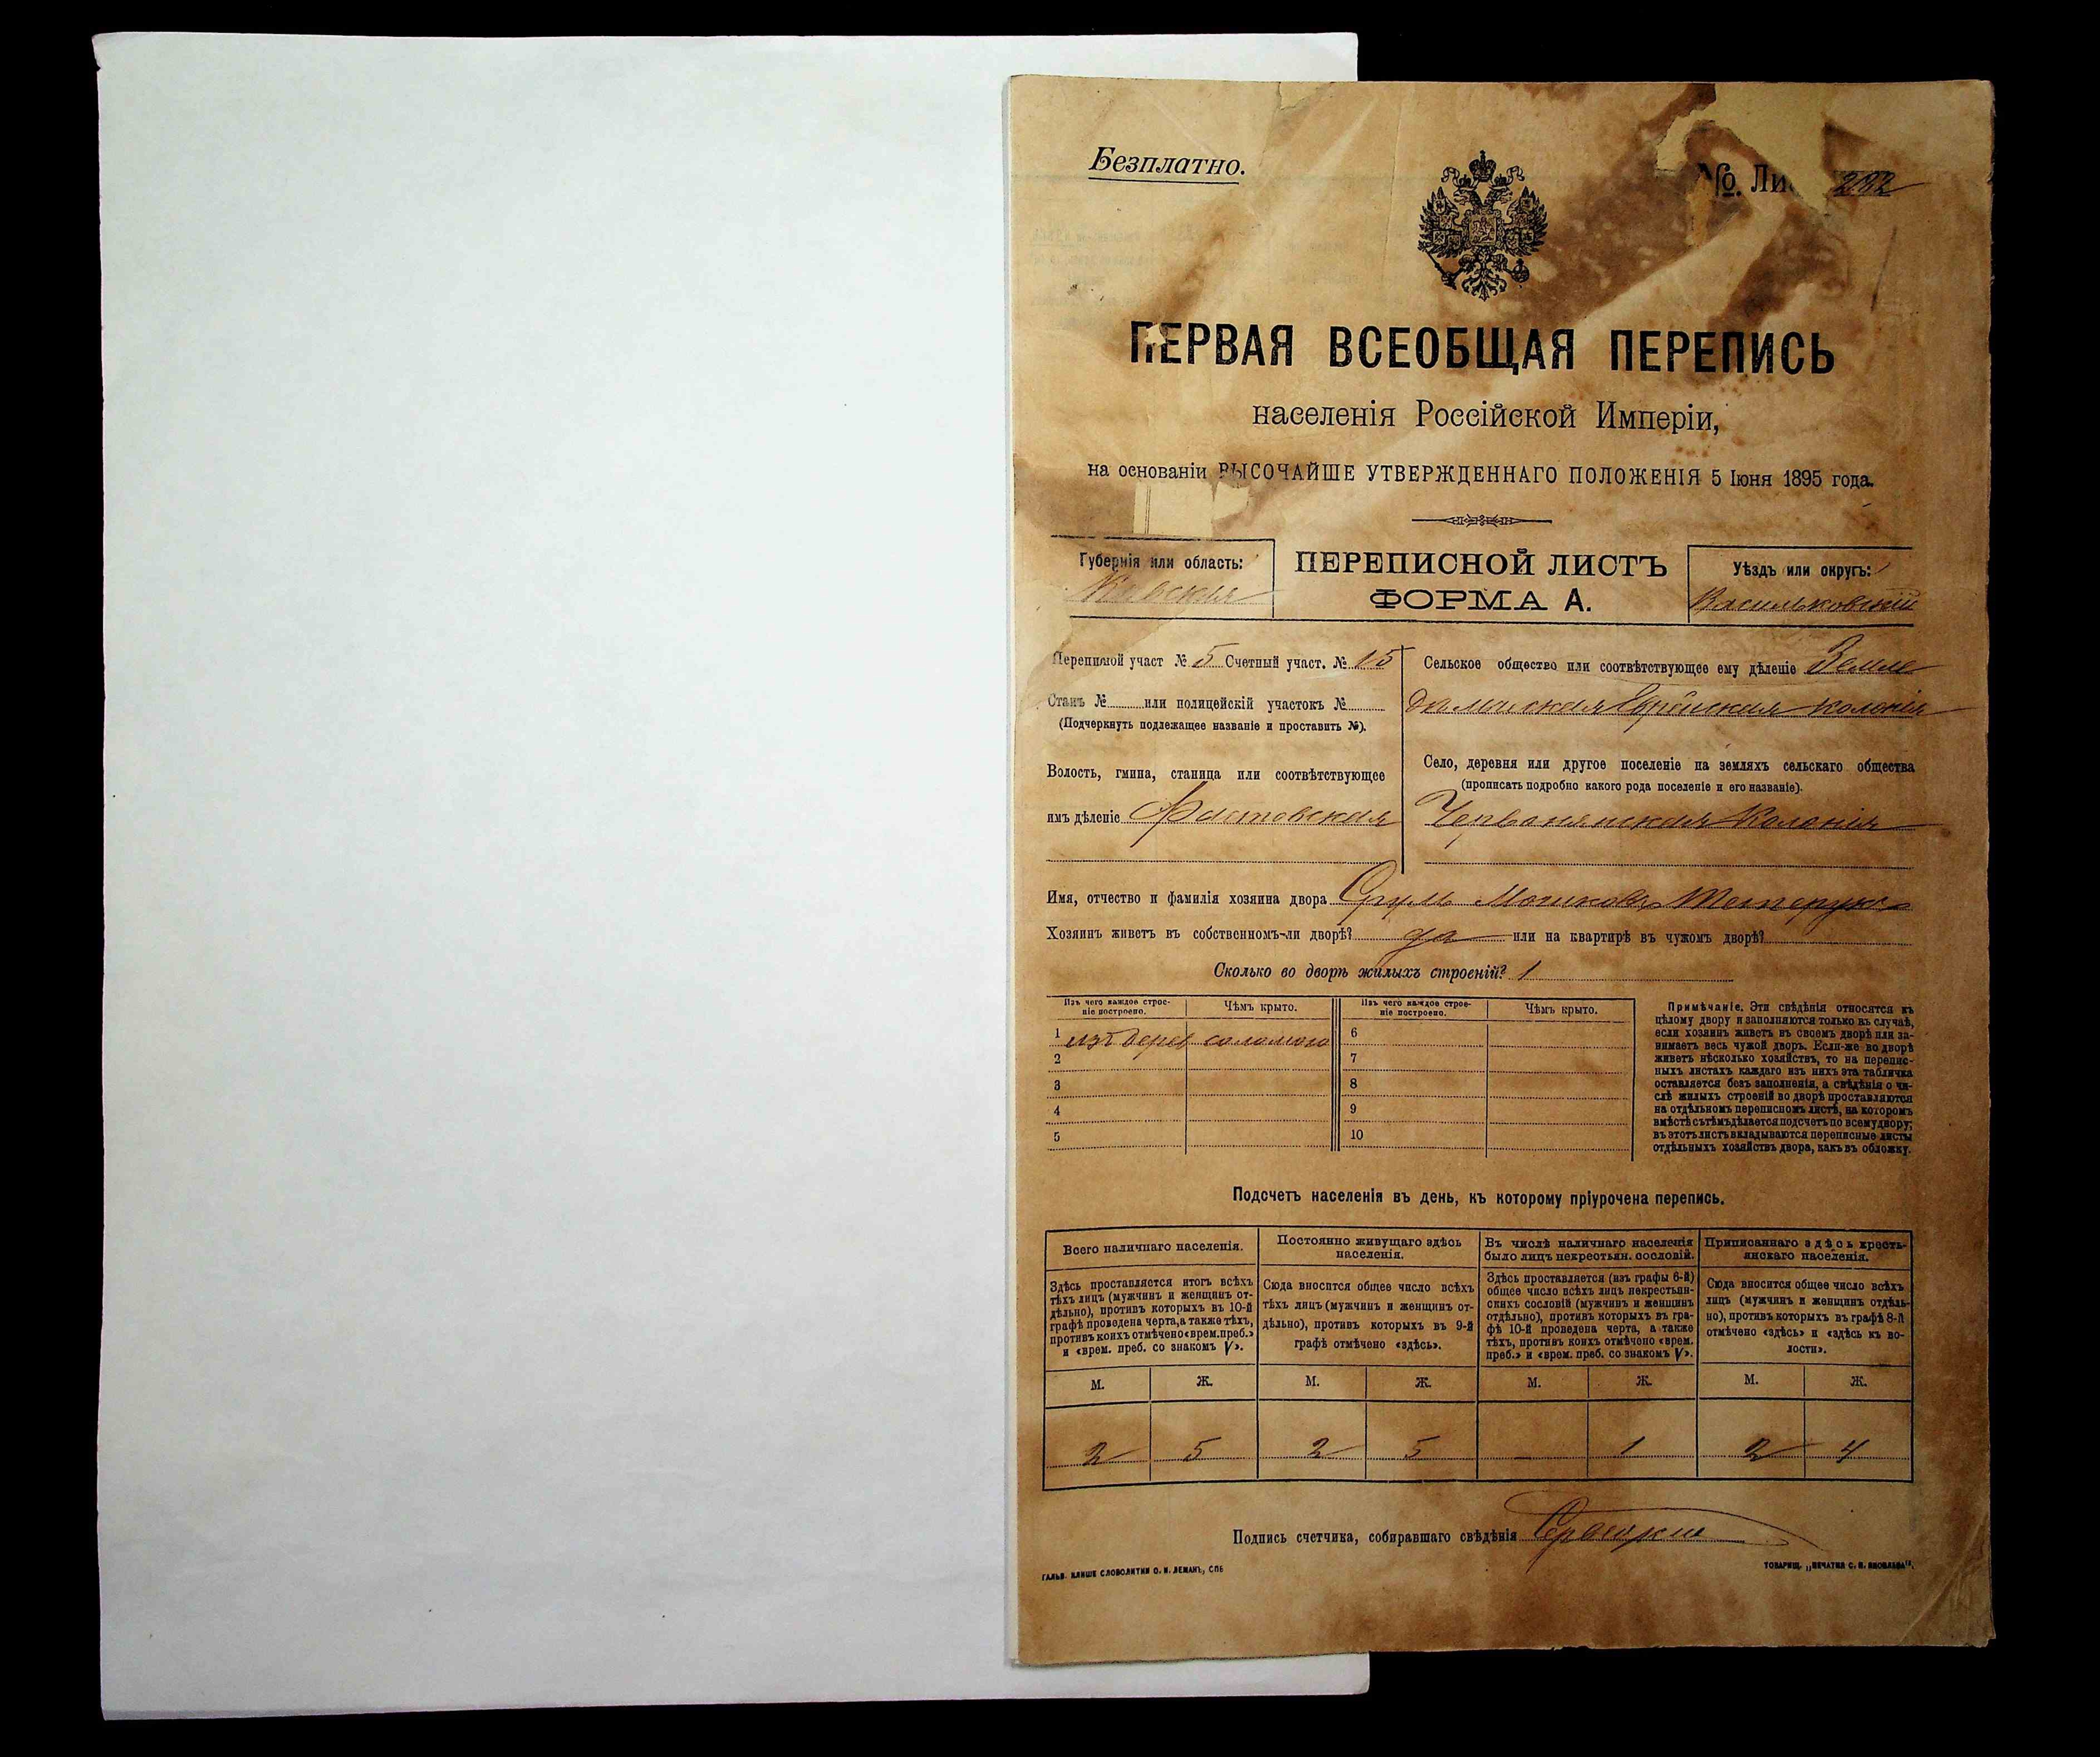 Безплатно.
№ 232
ПЕРВАЯ ВСЕОБЩАЯ ПЕРЕПИСЬ
населенія Россійской Имперіи,
на основаніи ВЫСОЧАЙШЕ УТВЕРЖДЕННАГО ПОЛОЖЕНІЯ 5 Іюня 1895 года.
Губернія или область:
Кіевская
ПЕРЕПИСНОЙ ЛИСТЪ
ФОРМА А.
Уѣздъ или округъ:
Васильковскій
Переписной участ № 5 Счетный участ. № 15
Станъ № или полицейскій участокъ №
(Подчеркнуть подлежащее названіе и проставить №).
Волость, гмина, станица или соотвѣтствующее
имъ дѣленіе Фастовская
Сельское общество или соотвѣтствующее ему дѣленіе Земле
дѣльческая Еврейская колонія
Село, деревня или другое поселеніе на земляхъ сельскаго общества
(прописать подробно какого рода поселеніе и его названіе).
Червонянская Колонія
Имя, отчество и фамилія хозяина двора Сруль Мошковъ Тетерукъ
Хозяинъ живетъ въ собственномъ-ли дворѣ? да или на квартирѣ въ чужомъ дворѣ?
Сколько во дворѣ жилыхъ строеній? 1
Изъ чего каждое строе-
ніе построено.
Чѣмъ крыто.
1 изъ дерев соломою
2
3
4
5
Изъ чего каждое строе-
ніе построено.
Чѣмъ крыто.
6
7
8
9
10
Примѣчаніе. Эти свѣдѣнія относятся къ
цѣлому двору и заполняются только въ случаѣ,
если хозяинъ живетъ въ своемъ дворѣ или за-
нимаетъ весь чужой дворъ. Если-же во дворѣ
живетъ нѣсколько хозяйствъ, то на перепис-
ныхъ листахъ каждаго изъ нихъ эта табличка
оставляется безъ заполненія, а свѣдѣнія о чи-
слѣ жилыхъ строеній во дворѣ проставляются
на отдѣльномъ переписномъ листѣ, на которомъ
вмѣстѣ съ тѣмъ дѣлается подсчетъ по всему двору;
въ этотъ листъ вкладываются переписные листы
отдѣльныхъ хозяйствъ двора, какъ въ обложку.
Подсчетъ населенія въ день, къ которому пріурочена перепись.
Всего наличнаго населенія.
Здѣсь проставляется итогъ всѣхъ
тѣхъ лицъ (мужчинъ и женщинъ от-
дѣльно), противъ которыхъ въ 10-й
графѣ проведена черта, а также тѣхъ,
противъ коихъ отмѣчено «врем. преб.»
и «врем. преб. со знакомъ V».
М. Ж.
2 5
Постоянно живущаго здѣсь
населенія.
Сюда вносится общее число всѣхъ
тѣхъ лицъ (мужчинъ и женщинъ от-
дѣльно), противъ которыхъ въ 9-й
графѣ отмѣчено «здѣсь».
М. Ж.
2 5
Въ числѣ наличнаго населенія
было лицъ некрестьян. сословій.
Здѣсь проставляется (изъ графы 6-й)
общее число всѣхъ лицъ некрестьян-
скихъ сословій (мужчинъ и женщинъ
отдѣльно), противъ которыхъ въ гра-
фѣ 10-й проведена черта, а также
тѣхъ, противъ коихъ отмѣчено «врем.
преб.» и «врем. преб. со знакомъ V».
М. Ж.
— 1
Приписаннаго здѣсь кресть-
янскаго населенія.
Сюда вносится общее число всѣхъ
лицъ (мужчинъ и женщинъ отдѣль-
но), противъ которыхъ въ графѣ 8-й
отмѣчено «здѣсь» и «здѣсь къ во-
лости».
М. Ж.
2 4
Подпись счетчика, собиравшаго свѣдѣнія
ГАЛЬВ. КЛИШЕ СЛОВОЛИТНИ О. И. ЛЕМАНЪ, СПБ
ТОВАРИЩ. „ПЕЧАТНЯ С. П. ЯКОВЛЕВА".